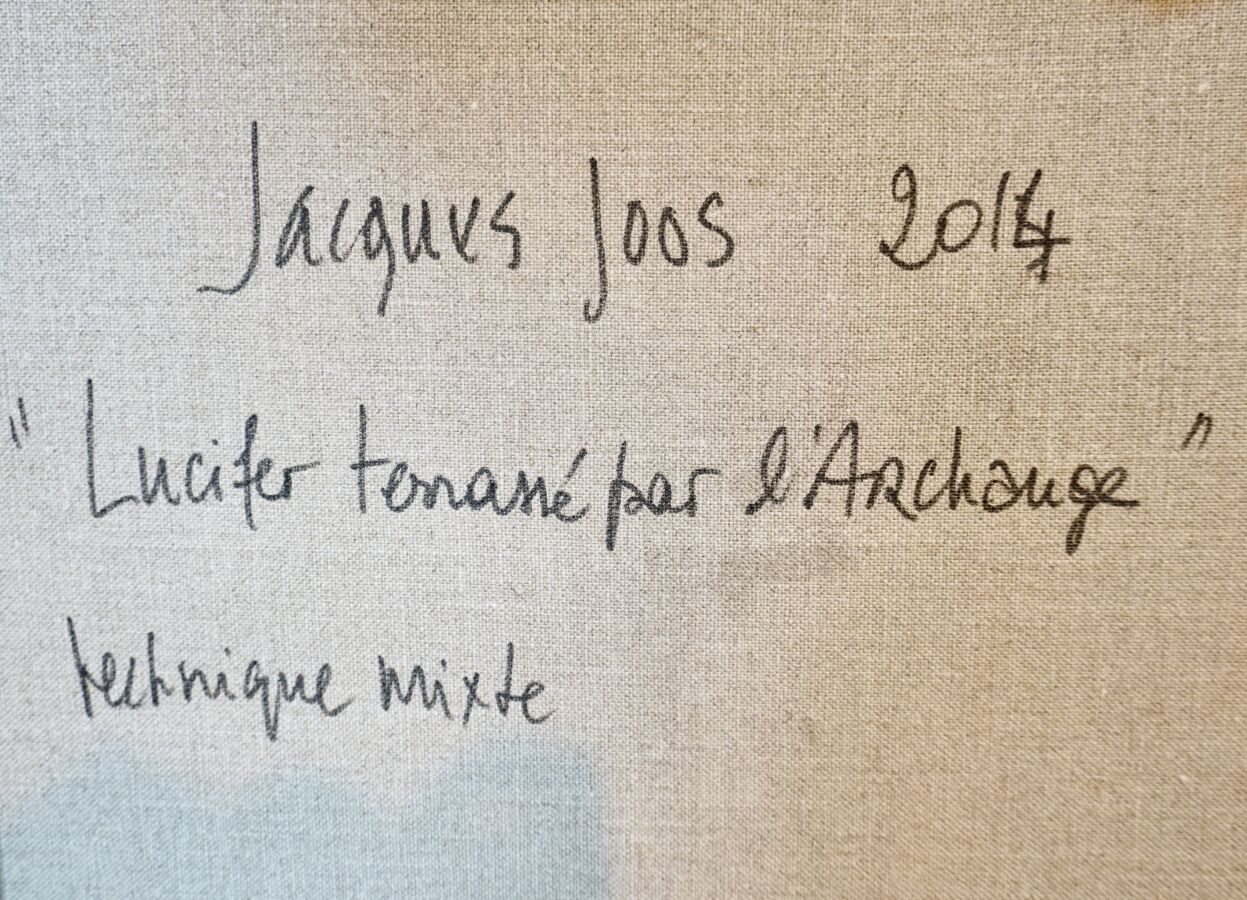 Jacques Joos 2014
"Lucifer terrassé par l'Archange"
technique mixte